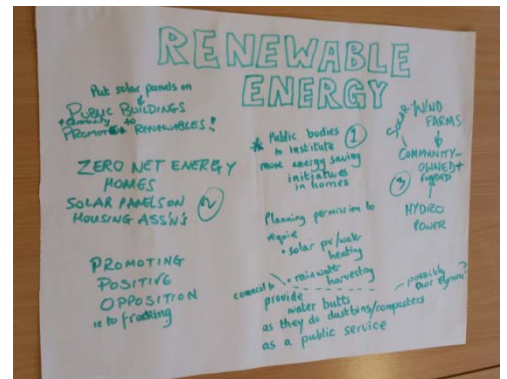 RENEWABLE
ENERGY
Put solar panels on
PUBLIC BUILDINGS
+ community to
PROMOTE RENEWABLES!
ZERO NET ENERGY
HOMES
SOLAR PANELS ON
HOUSING ASS'N'S
2
PROMOTING
POSITIVE
OPPOSITION
to fracking
* Public bodies
to institute
more energy saving
initiatives
in homes
1
Planning permission to
require
• solar pv/water
heating
• rainwater
harvesting
council to
provide
water butts
as they do dustbins/composters
as a public service
possibly
over
SOLAR
WIND
FARMS
COMMUNITY-
OWNED+
FUNDED
3
HYDRO
POWER